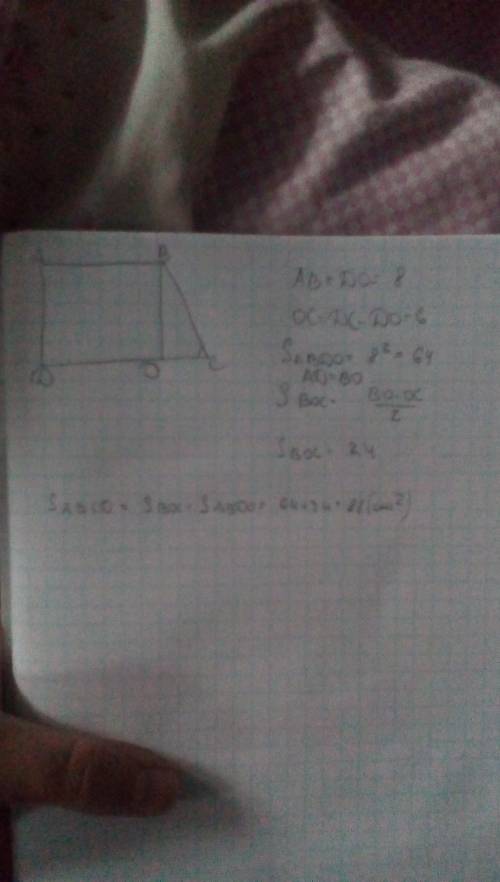 B
D O C
AB = DO = 8
OC = DC - DO = 6
S ABOD = 8² = 64
AD = BO
S BOC = BO·OC / 2
S BOC = 24
S ABCD = S BOC + S ABOD = 64+24 = 88 (см²)